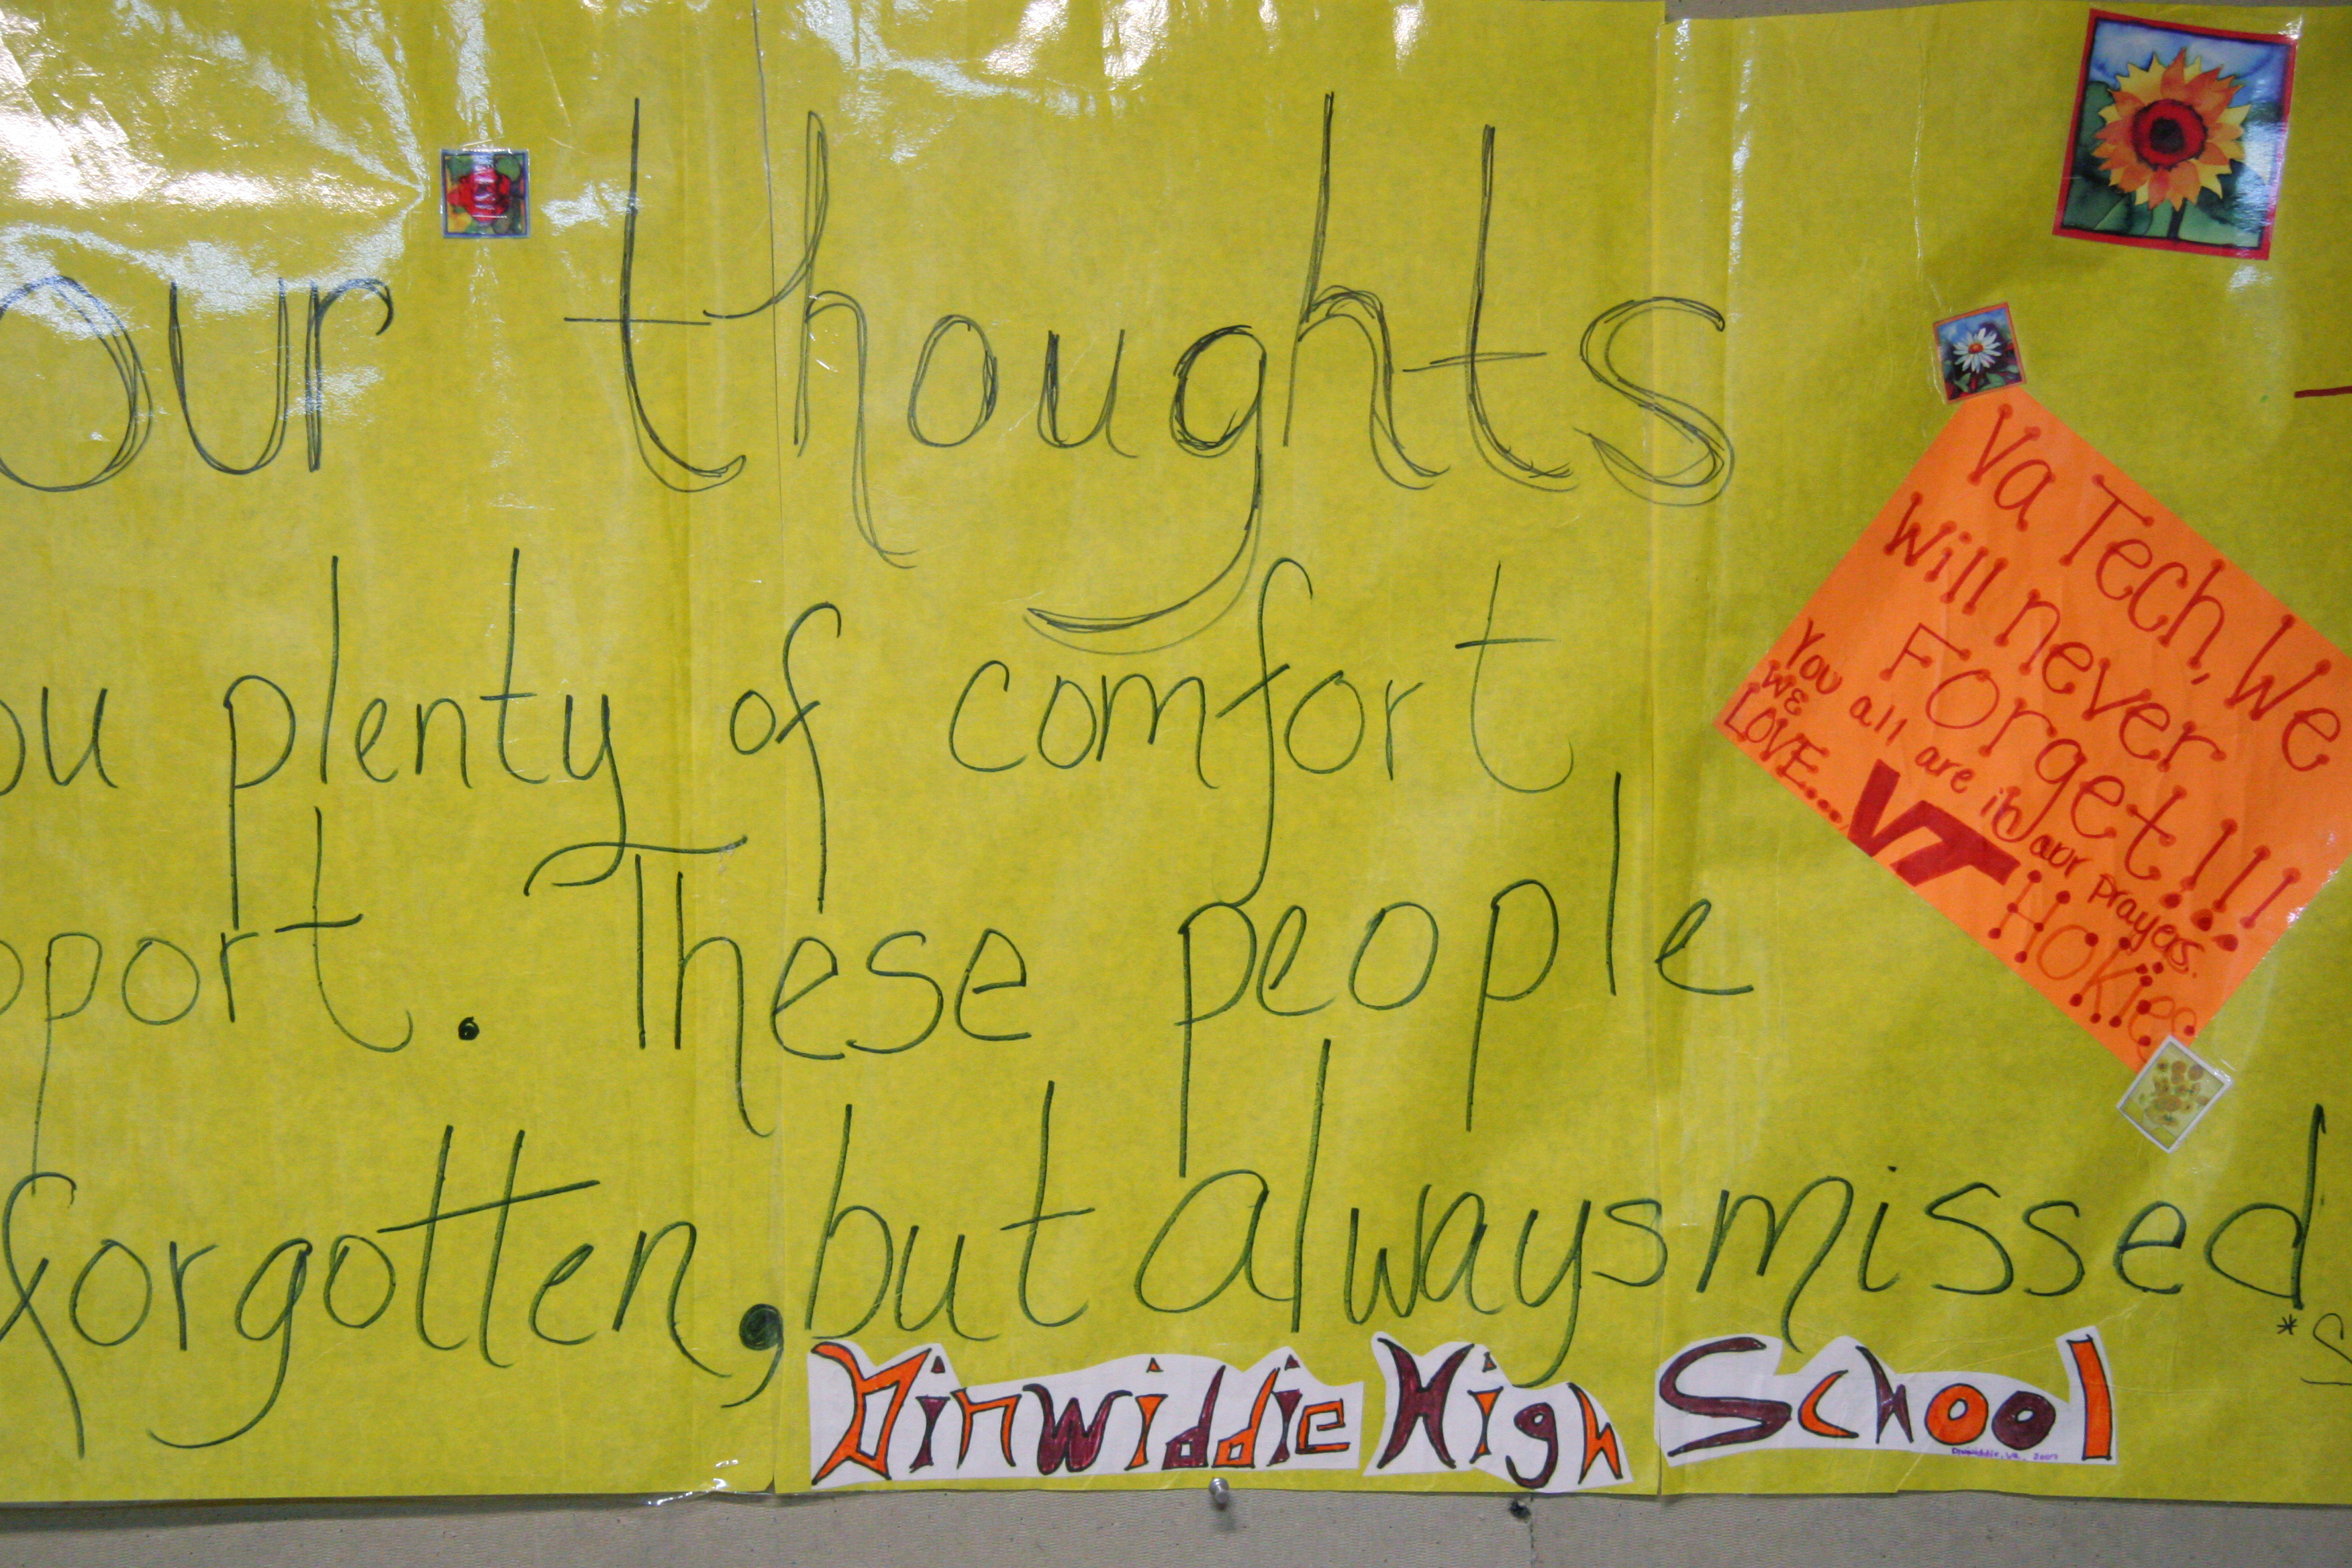 our thoughts
ou plenty of comfort
pport. These people
forgotten, but always missed
Va Tech, We
will never
Forget!!!
You all are in our prayers.
WE
LOVE...
VT
HOKiES
Dinwiddie High School
Dinwiddie, VA. 2007
*S